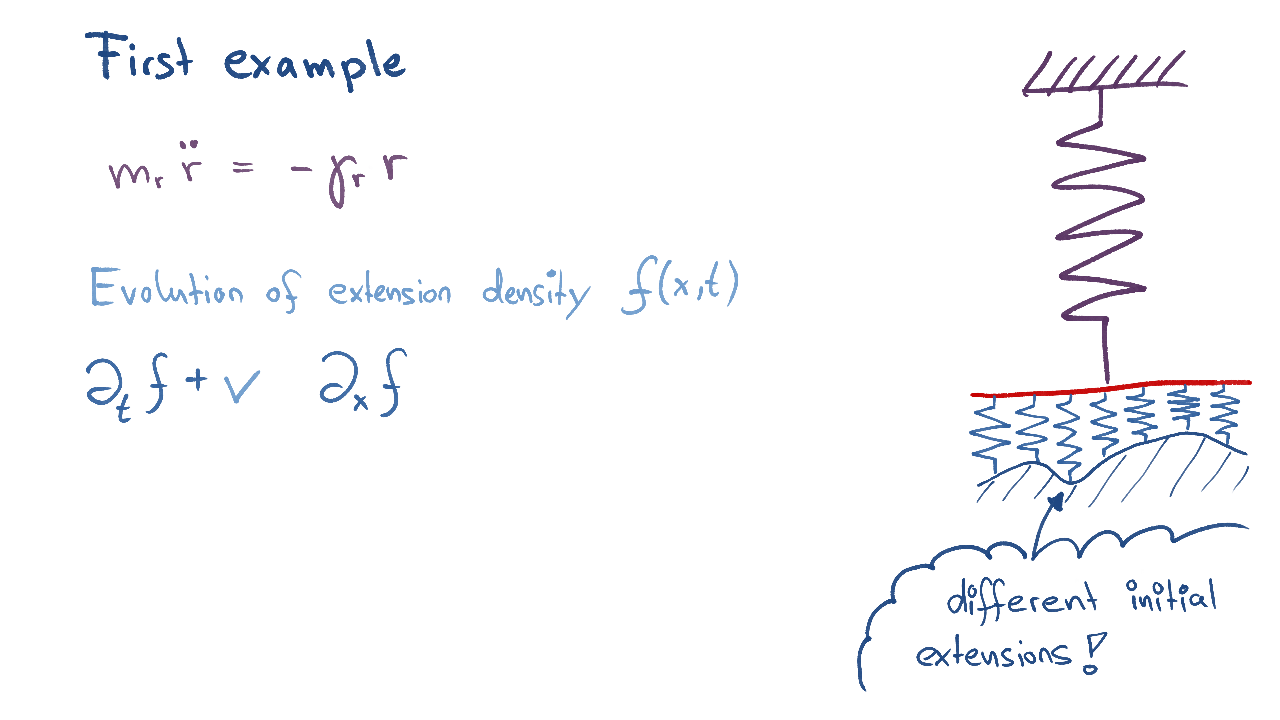 First example
mᵣ r̈ = - γᵣ r
Evolution of extension density f(x,t)
∂ₜ f + v ∂ₓ f
different initial
extensions!